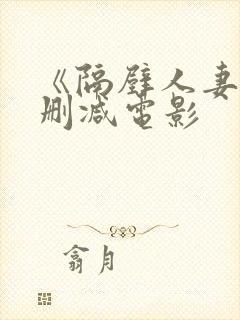 《隔壁人妻
删减电影
翕月